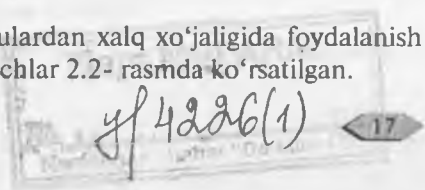 ulardan xalq xo‘jaligida foydalanish
chlar 2.2- rasmda ko‘rsatilgan.
4226(1)
17